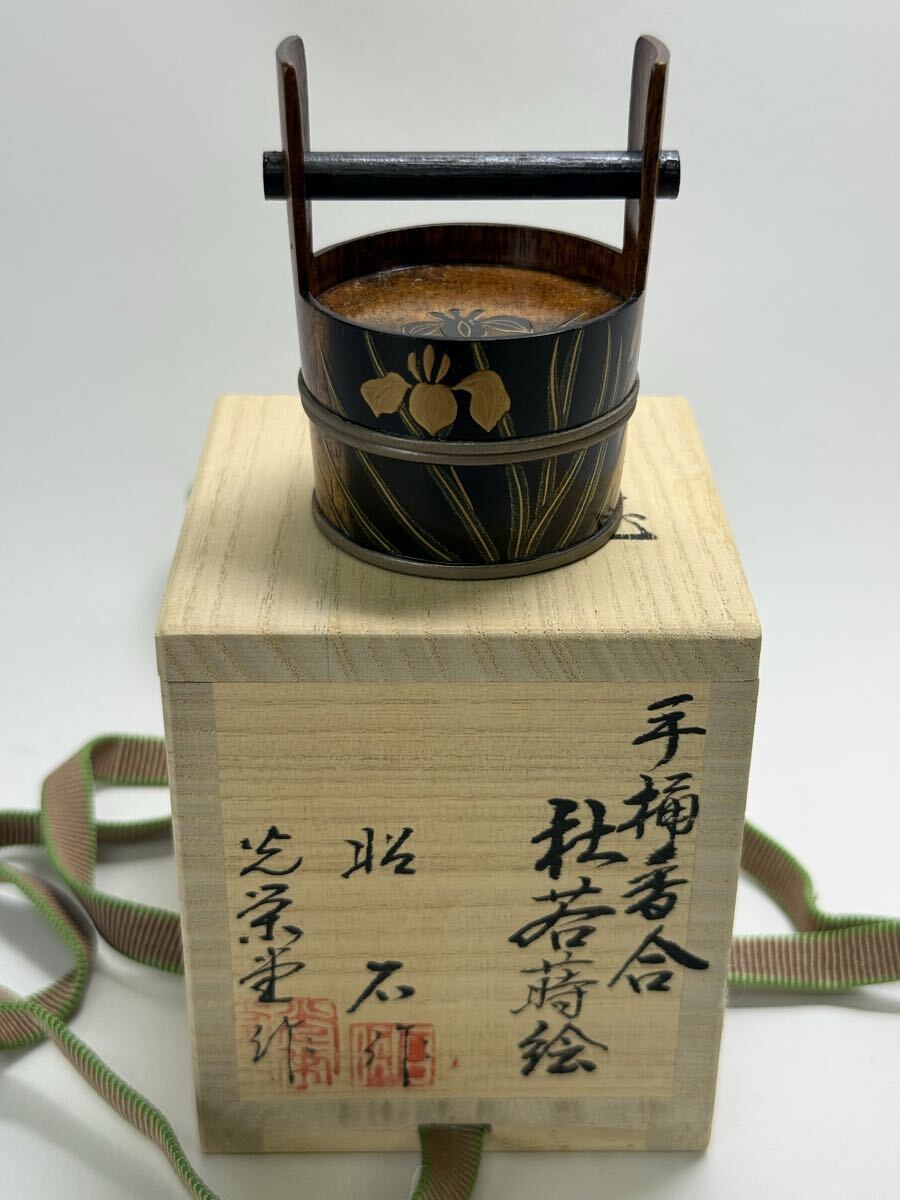 手桶香合
杜若蒔絵
昭石作
光栄堂作